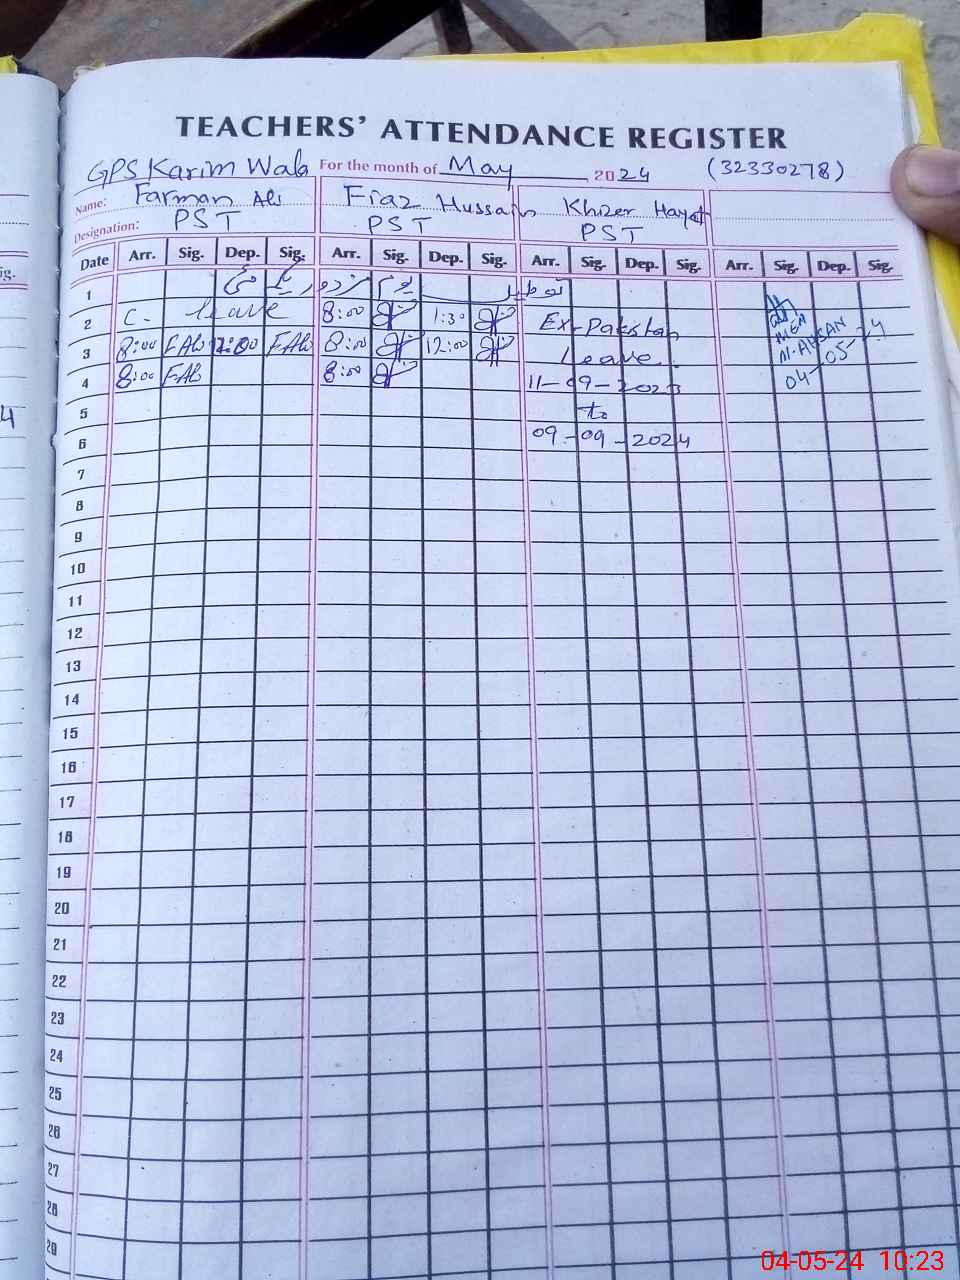 TEACHERS' ATTENDANCE REGISTER
GPS Karim Wala For the month of May 2024 (32330278)
Name: Farman Ali Fiaz Hussain Khizer Hayat
Designation: PST PST PST
Date Arr. Sig. Dep. Sig. Arr. Sig. Dep. Sig. Arr. Sig. Dep. Sig. Arr. Sig. Dep. Sig.
1 یکم مئی یوم مزدور تعطیل
2 C. leave 8:00 1:30 Ex-Pakistan MEA
3 8:00 FAli 12:00 FAli 8:00 12:00 Leave M.AHSAN
4 8:00 FAli 8:00 11-09-2023 04-05-24
5 to
6 09-09-2024
7
8
9
10
11
12
13
14
15
16
17
18
19
20
21
22
23
24
25
26
27
28
29
ig.
4
04-05-24 10:23